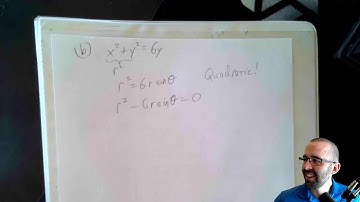 b) x² + y² = 6y
r²
r² = 6r sinθ Quadratic!
r² - 6r sinθ = 0